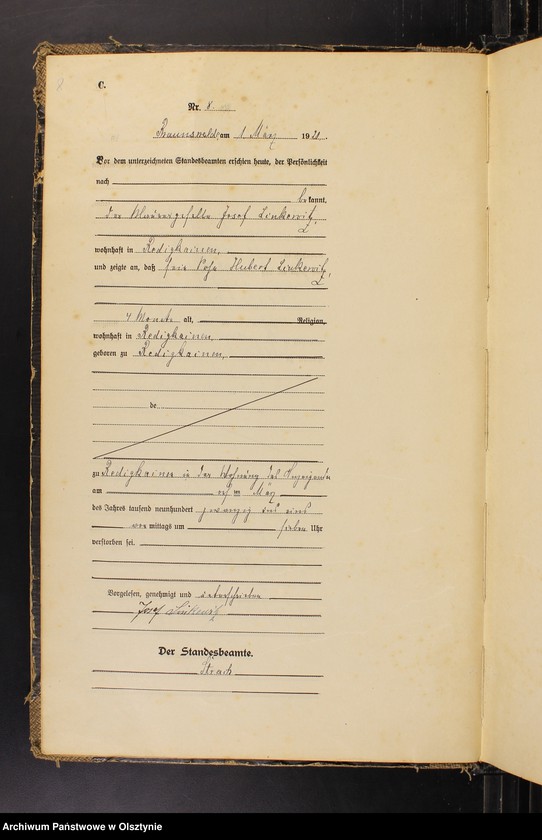 C.
Nr. 8.
Braunswalde am 1. März 1921.
Vor dem unterzeichneten Standesbeamten erschien heute, der Persönlichkeit
nach
bekannt,
der Maurergeselle Josef Linkowitz,
wohnhaft in Redigkainen,
und zeigte an, daß sein Sohn Hubert Linkowitz,
4 Monate alt, Religion,
wohnhaft in Redigkainen,
geboren zu Redigkainen,
de
zu Redigkainen in der Wohnung des Anzeigenden
am März
des Jahres tausend neunhundert zwanzig und eins
vormittags um sieben Uhr
verstorben sei.
Vorgelesen, genehmigt und unterschrieben
Josef Linkowitz
Der Standesbeamte.
Strach
Archiwum Państwowe w Olsztynie